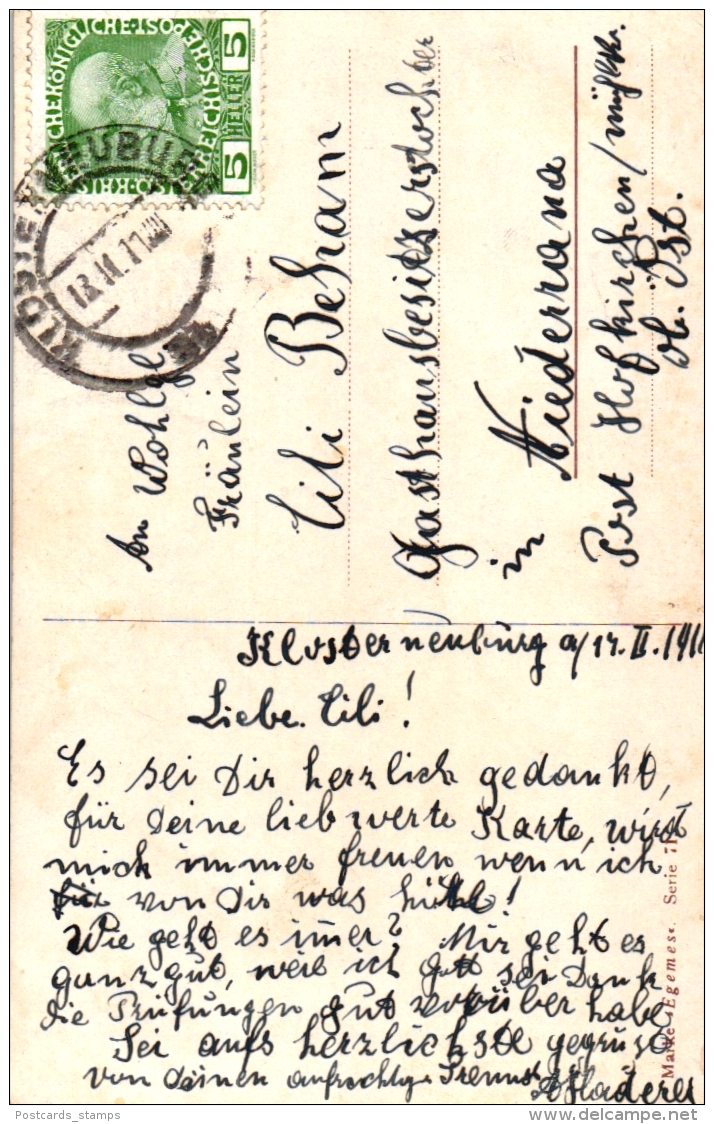 KAIS. KÖNIGLICHE ÖSTERREICHISCHE POST
5 HELLER 5
KLOSTERNEUBURG
An Wohlg.
Fräulein
Cili Beham
Gasthausbesitzerstochter
in Niederrana
Post Hofkirchen/Mühlkr.
Ob. Öst.
Klosterneuburg a/17. II. 1911
Liebe Cili!
Es sei Dir herzlich gedankt,
für Deine liebwerte Karte, wird
mich immer freuen wenn ich
von Dir was
Wie geht es immer? Mir geht es
ganz gut, weil ich Gott sei Dank
die Prüfungen gut vorüber habe
Sei aufs herzlichste gegrüsst
von Deinen aufrichtg.
Marke »Egemes«. Serie
Postcards_stamps
delcampe.net